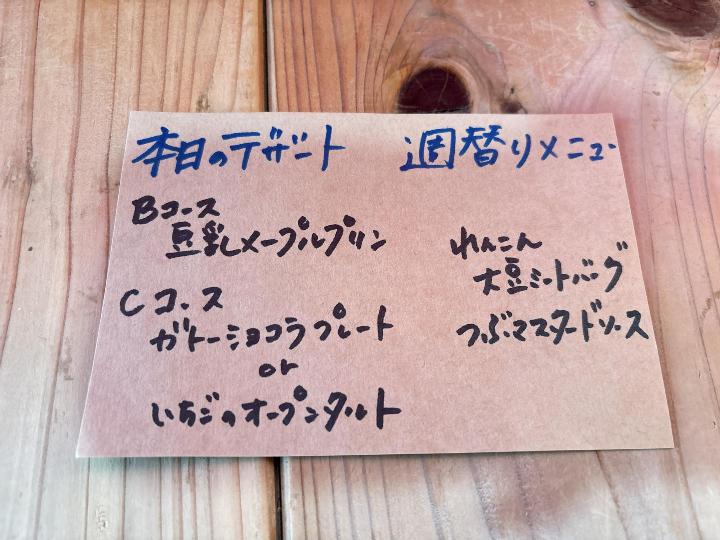 本日のデザート
Bコース
豆乳メープルプリン
Cコース
ガトーショコラプレート
or
いちごのオープンタルト
週替りメニュー
れんこん
大豆ミートバーグ
つぶマスタードソース